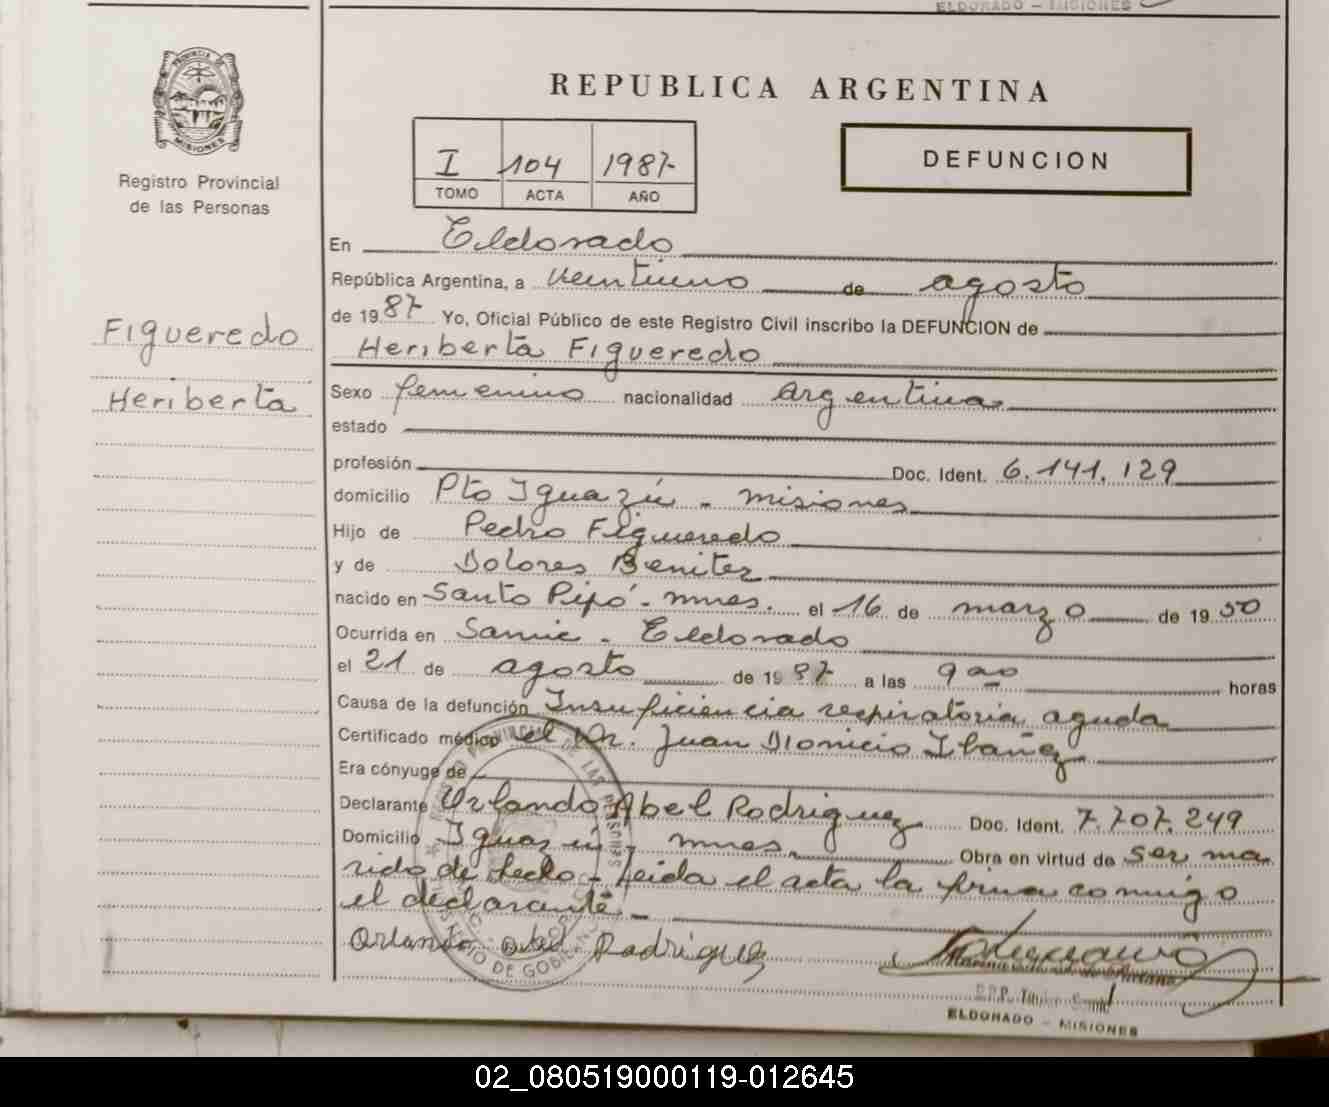 ELDORADO – MISIONES
PROVINCIA DE
MISIONES
Registro Provincial
de las Personas
Figueredo
Heriberta
REPUBLICA ARGENTINA
I 104 1987
TOMO ACTA AÑO
DEFUNCION
En Eldorado
República Argentina, a veintiuno de agosto
de 1987 Yo, Oficial Público de este Registro Civil inscribo la DEFUNCION de
Heriberta Figueredo
Sexo femenino nacionalidad Argentina
estado
profesión Doc. Ident. 6.141.129
domicilio Pto Iguazú - misiones
Hijo de Pedro Figueredo
y de Dolores Benitez
nacido en Santo Pipó - mnes. el 16 de marzo de 1950
Ocurrida en Samic - Eldorado
el 21 de agosto de 1987 a las 9 00 horas
Causa de la defunción Insuficiencia respiratoria aguda
Certificado médico el Dr. Juan Dionicio Ibañez
Era cónyuge de
Declarante Orlando Abel Rodriguez Doc. Ident. 7.707.249
Domicilio Iguazú - mnes. Obra en virtud de ser ma
rido de hecho - Leida el acta la firma conmigo
el declarante -
Orlando Abel Rodriguez
ELDORADO – MISIONES
02_080519000119-012645